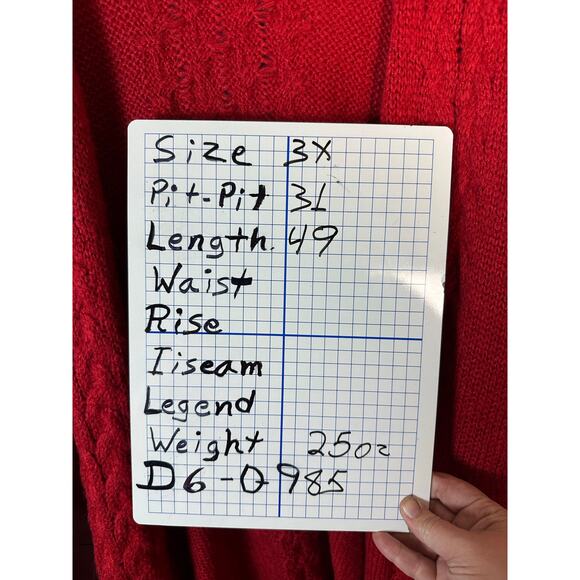 Size 3X
Pit-Pit 31
Length. 49
Waist
Rise
Iiseam
Legend
Weight 25oz
D6-0985